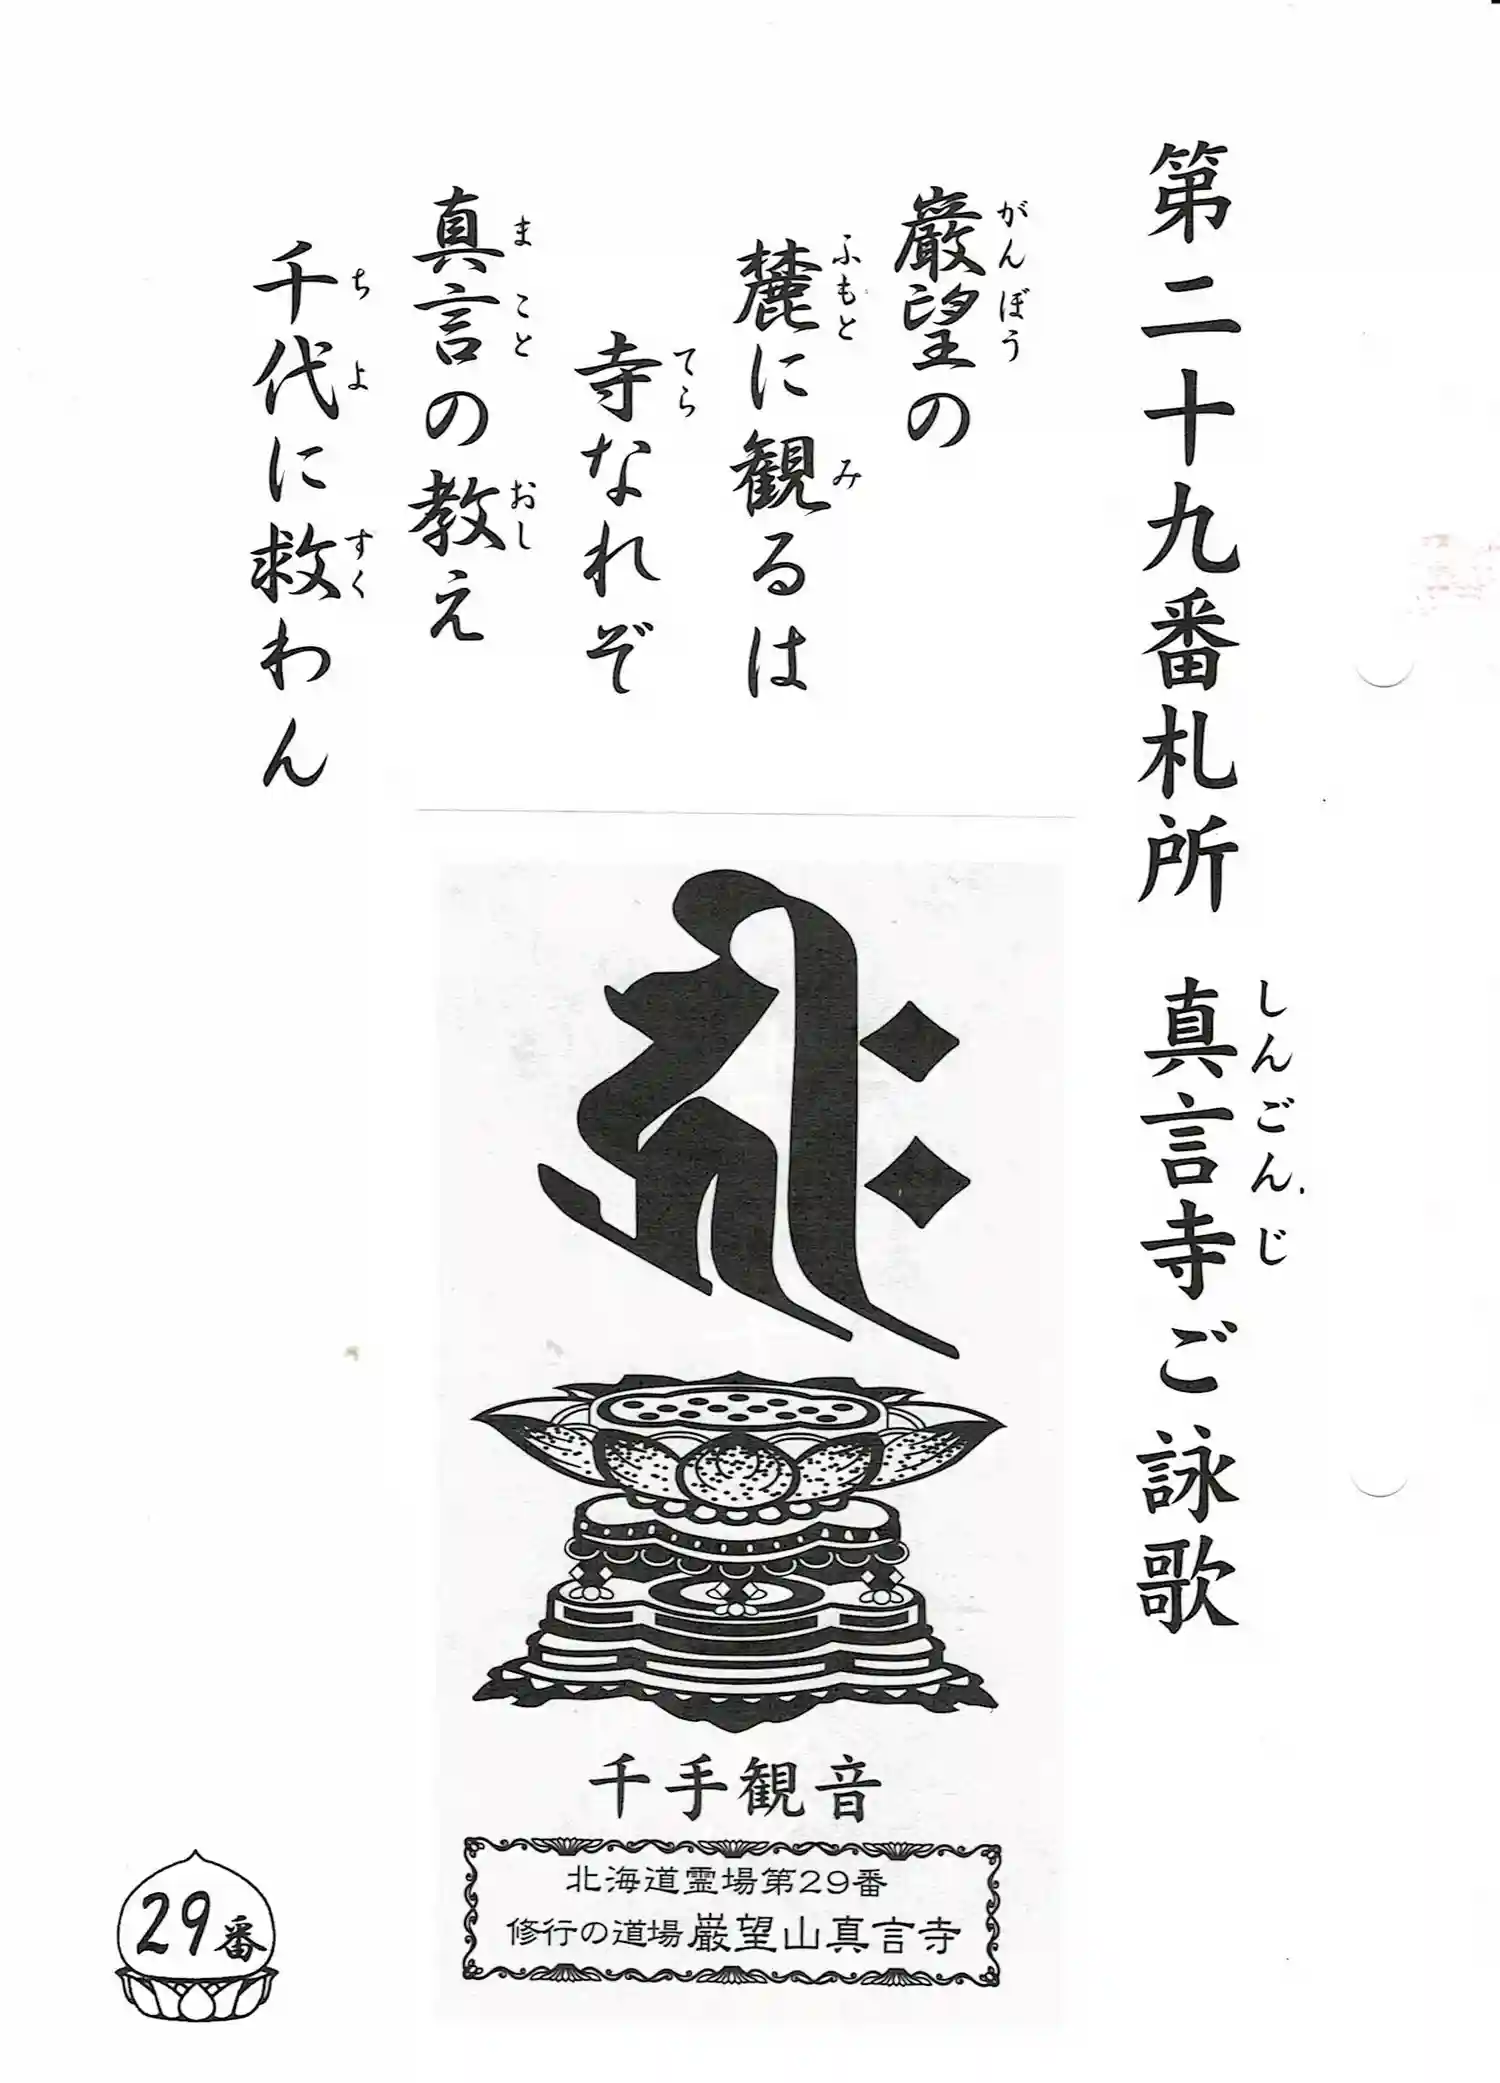 第二十九番札所 真言寺ご詠歌
しんごんじ
巌望の
がんぼう
麓に観るは
ふもと み
寺なれぞ
てら
真言の教え
まこと おし
千代に救わん
ちよ すく
𑖮𑖿𑖨𑖱𑖾
千手観音
北海道霊場第29番
修行の道場 巌望山真言寺
29番